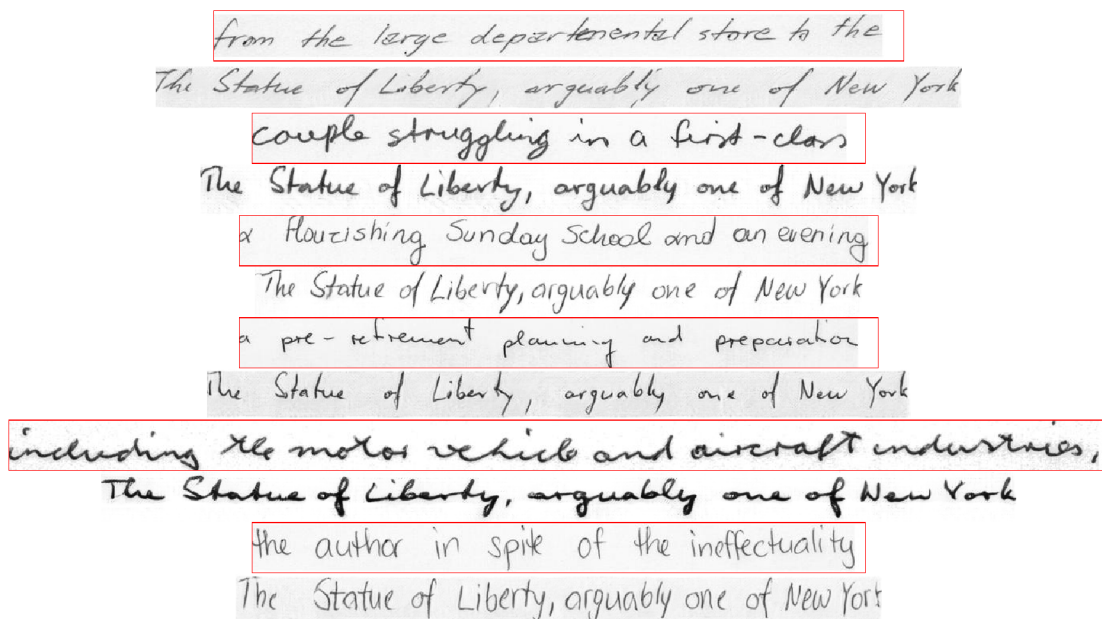 from the large departmental store to the
The Statue of Liberty, arguably one of New York
couple struggling in a first-class
The Statue of Liberty, arguably one of New York
a flourishing Sunday School and an evening
The Statue of Liberty, arguably one of New York
a pre-retirement planning and preparation
The Statue of Liberty, arguably one of New York
including the motor vehicle and aircraft industries,
The Statue of Liberty, arguably one of New York
the author in spite of the ineffectuality
The Statue of Liberty, arguably one of New York